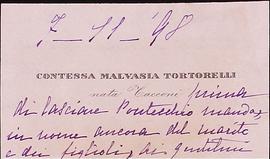 7-11-98
CONTESSA MALVASIA TORTORELLI
nata Tacconi prima
di lasciare Pontecchio manda,
in nome ancora del marito
e dei figlioli, i gentilmi